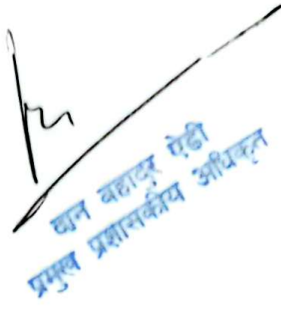 दान बहादुर ऐडी
प्रमुख प्रशासकीय अधिकृत